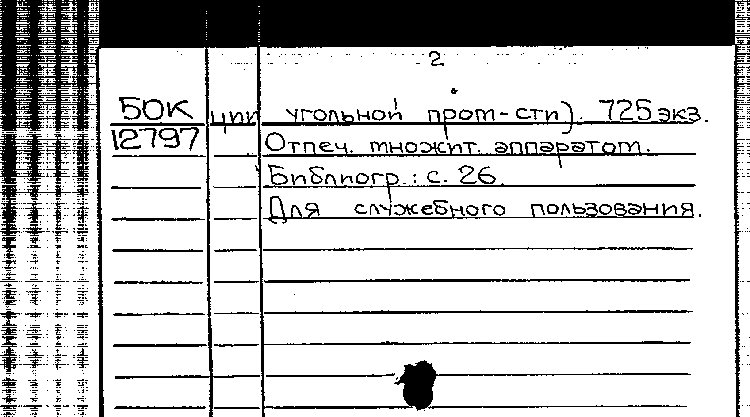 2
БОК ции угольной пром-сти). 725 экз.
12797 Отпеч. множит. аппаратом.
Библиогр.: с. 26.
Для служебного пользования.